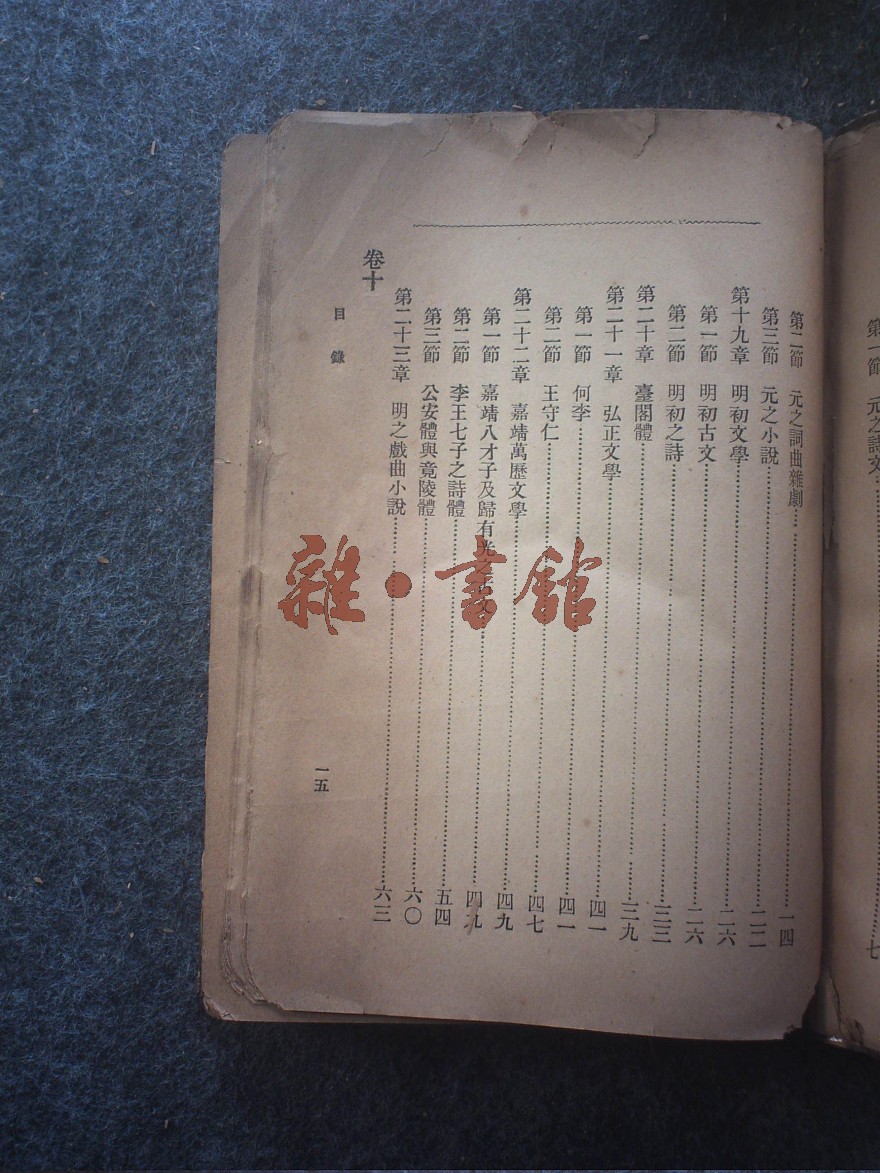 第一節 元之詩文 七
第二節 元之詞曲雜劇 一四
第三節 元之小說 二二
第十九章 明初文學 二六
第一節 明初古文 二六
第二節 明初之詩 三三
第二十章 臺閣體 三九
第二十一章 弘正文學 四一
第一節 何李 四一
第二節 王守仁 四七
第二十二章 嘉靖萬歷文學 四九
第一節 嘉靖八才子及歸有光之古文 四九
第二節 李王七子之詩體 五四
第三節 公安體與竟陵體 六〇
第二十三章 明之戲曲小說 六三
卷十
目錄 一五
雜·書館